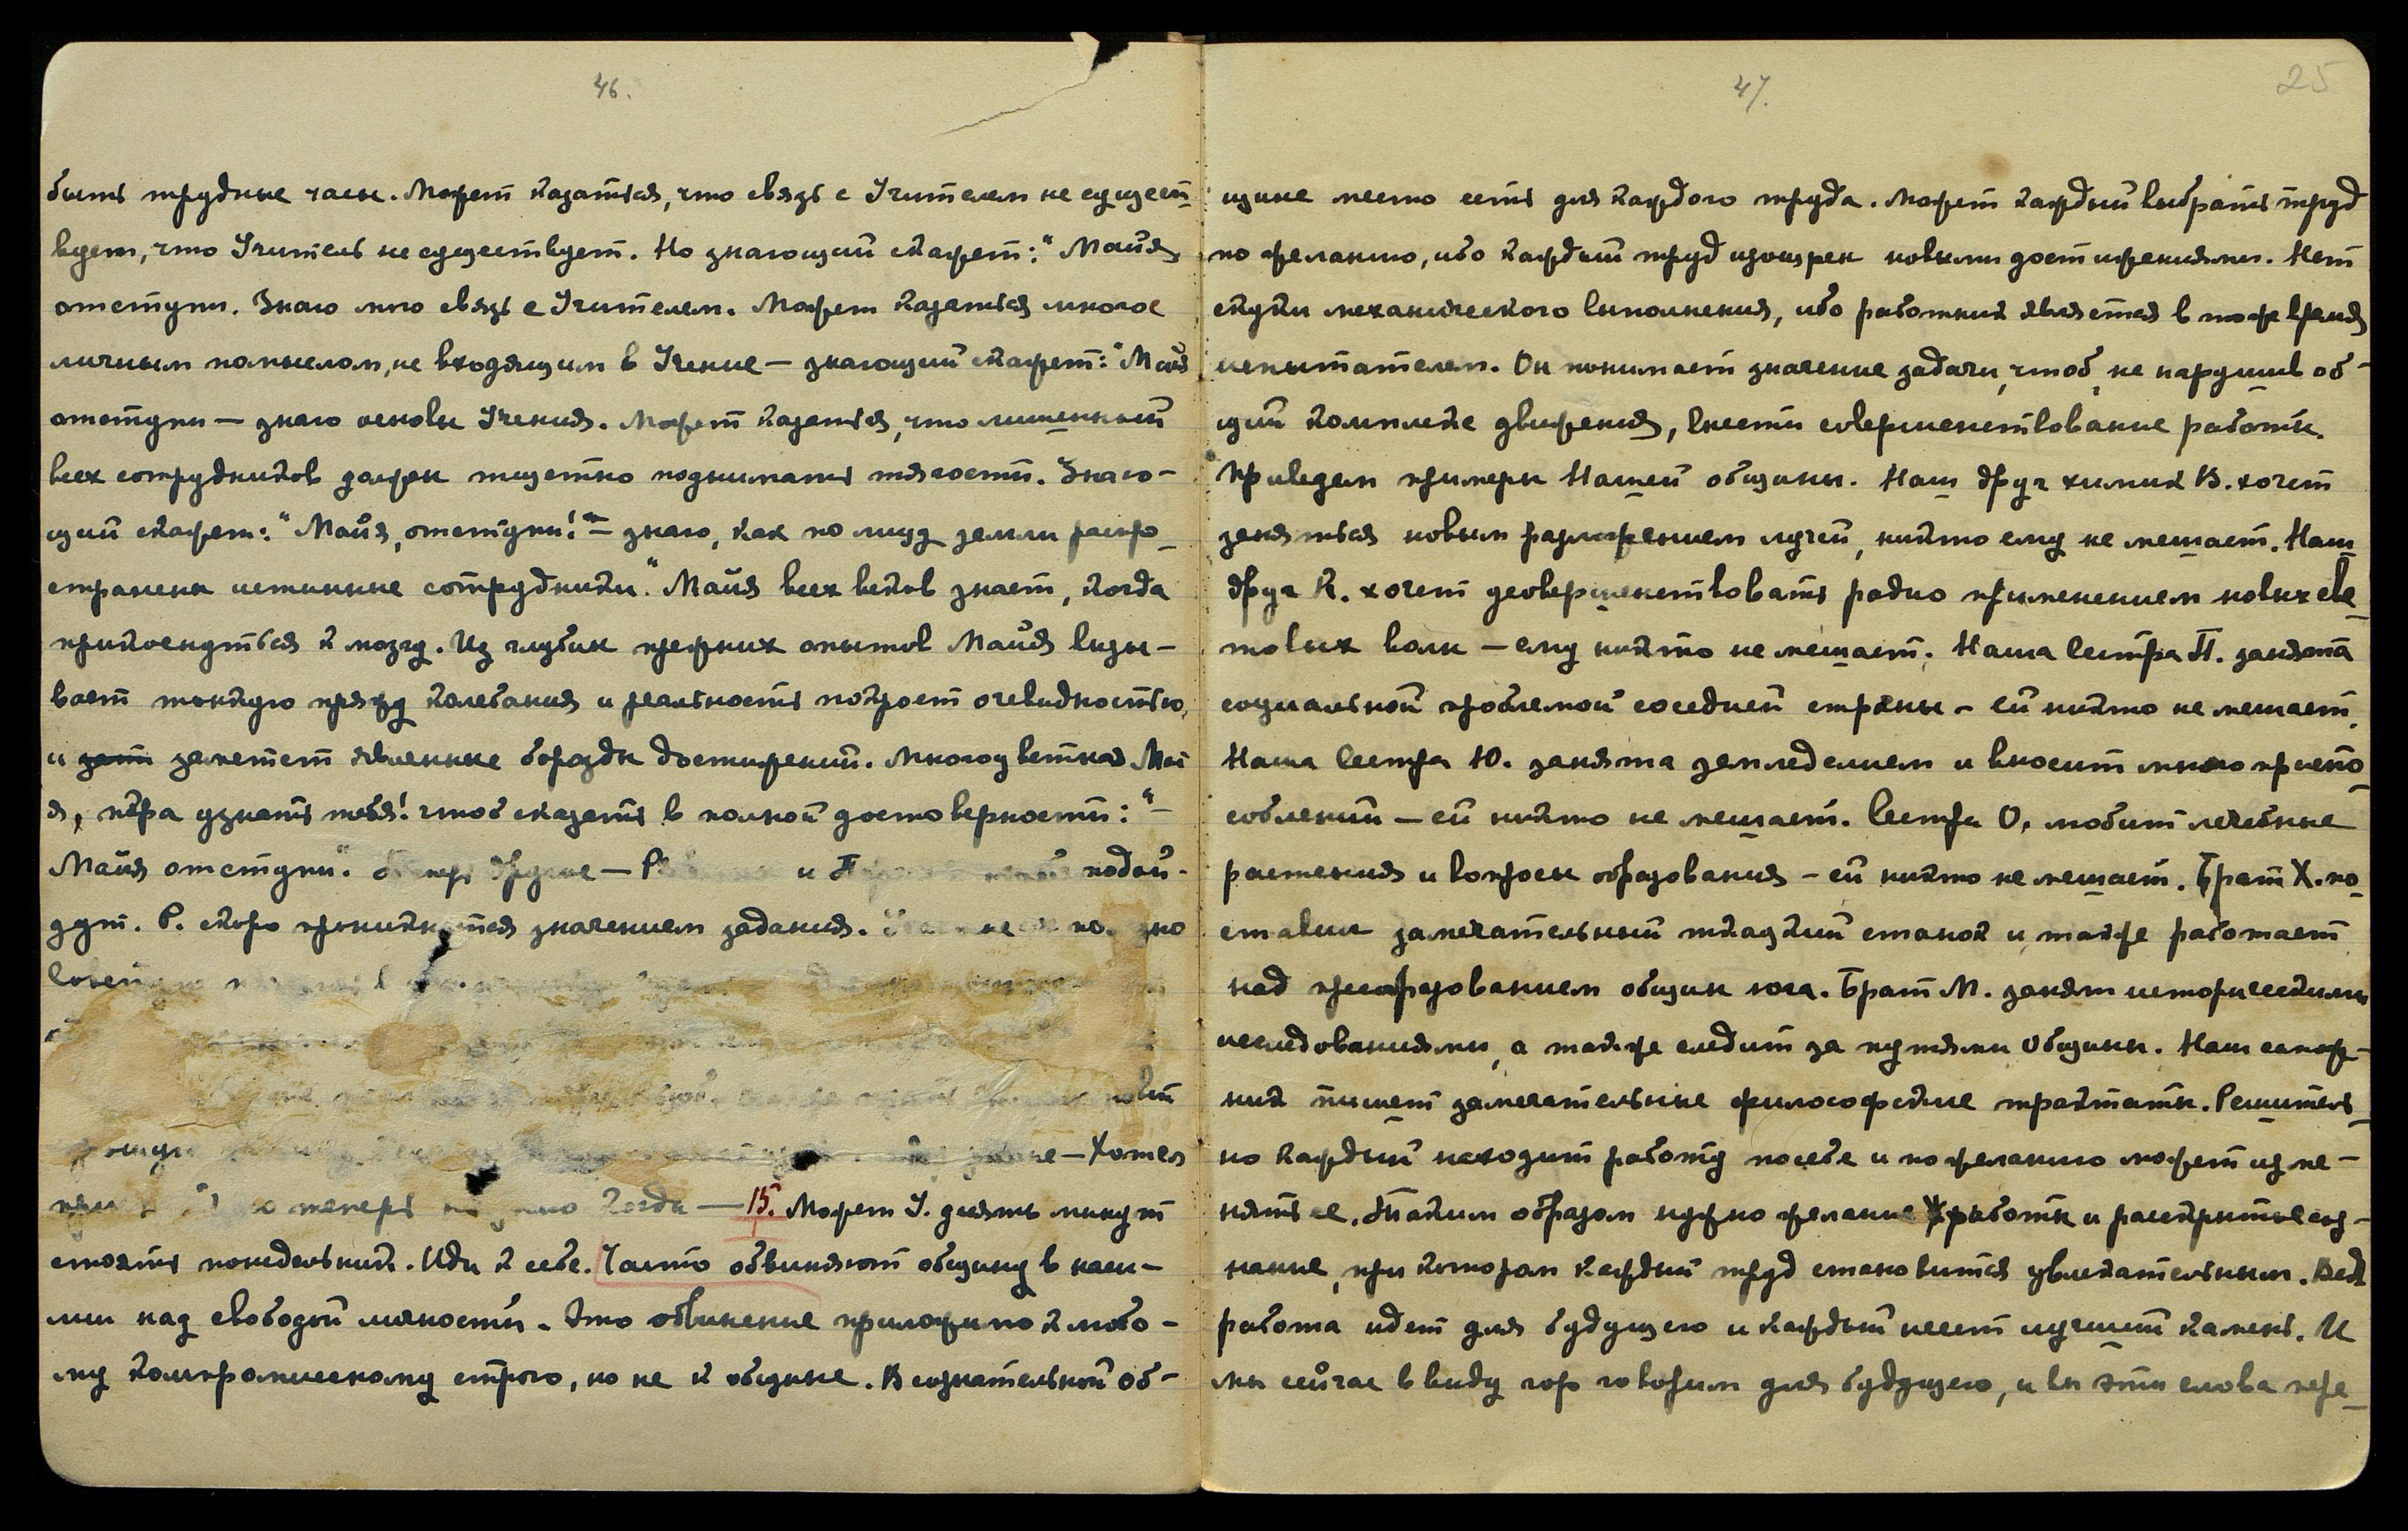 46.
быть трудные часы. Может казаться, что связь с Учителем не сущест-
вует, что Учитель не существует. Но знающий скажет: "Майя,
отступи. Знаю мою связь с Учителем. Может казаться многое
личным помыслом, не входящим в Учение — знающий скажет: "Майя
отступи — знаю основы Учения. Может казаться, что лишенный
всех сотрудников должен тщетно поднимать тягости. Знаю-
щий скажет: "Майя, отступи! — знаю, как по лицу земли распро-
странены истинные сотрудники." Майя всех веков знает, когда
прикоснуться к мозгу. Из глубин прежних опытов Майя вызы-
вает тонкую пряжу колебания и реальность покроет очевидностью,
и заметет явленные борозды достижений. Многоцветная Май-
я, пора узнать тебя! чтоб сказать в полной достоверности: "—
Майя отступи". другие — Р и П подой-
дут. Р. скоро проникнется значением задания.
— Хотел
теперь когда — 15. Может У. девять минут
стоять понедельник. Иди к себе. Часто обвиняют общину в наси-
лии над свободой личности. Это обвинение приложимо к любо-
му компромиссному строю, но не к общине. В сознательной об-
47.
25
щине место есть для каждого труда. Может каждый выбрать труд
по желанию, ибо каждый труд изощрен новыми достижениями. Нет
скуки механического выполнения, ибо работник является в то же время
испытателем. Он понимает значение задачи, чтоб, не нарушив об-
щий комплекс движения, внести совершенствование работы.
Приведем примеры Нашей общины. Наш друг химик В. хочет
заняться новым разложением лучей, никто ему не мешает. Наш
друг К. хочет усовершенствовать радио применением новых све-
товых волн — ему никто не мешает. Наша сестра П. занята
социальной проблемой соседней страны — ей никто не мешает.
Наша сестра Ю. занята земледелием и вносит много приспо-
соблений — ей никто не мешает. Сестра О. любит лечебные
растения и вопросы образования — ей никто не мешает. Брат Х. по-
ставил замечательный ткацкий станок и также работает
над преобразованием общин юга. Брат М. занят историческими
исследованиями, а также следит за путями Общины. Наш сапож-
ник пишет замечательные философские трактаты. Решитель-
но каждый находит работу по себе и по желанию может изме-
нять ее. Таким образом нужно желание работы и раскрытие соз-
нание, при котором каждый труд становится увлекательным. Ведь
работа идет для будущего и каждый несет лучший камень. И
мы сейчас в виду гор говорим для будущего, и вы эти слова пере-